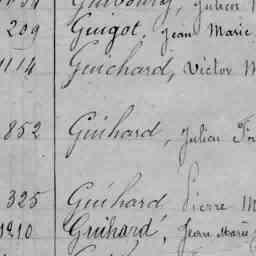 Guibourg, Julien
209 Guigot, Jean Marie
1114 Guichard, Victor M
852 Guihard, Julien Fr
325 Guihard Pierre M
1210 Guihard, Jean Marie